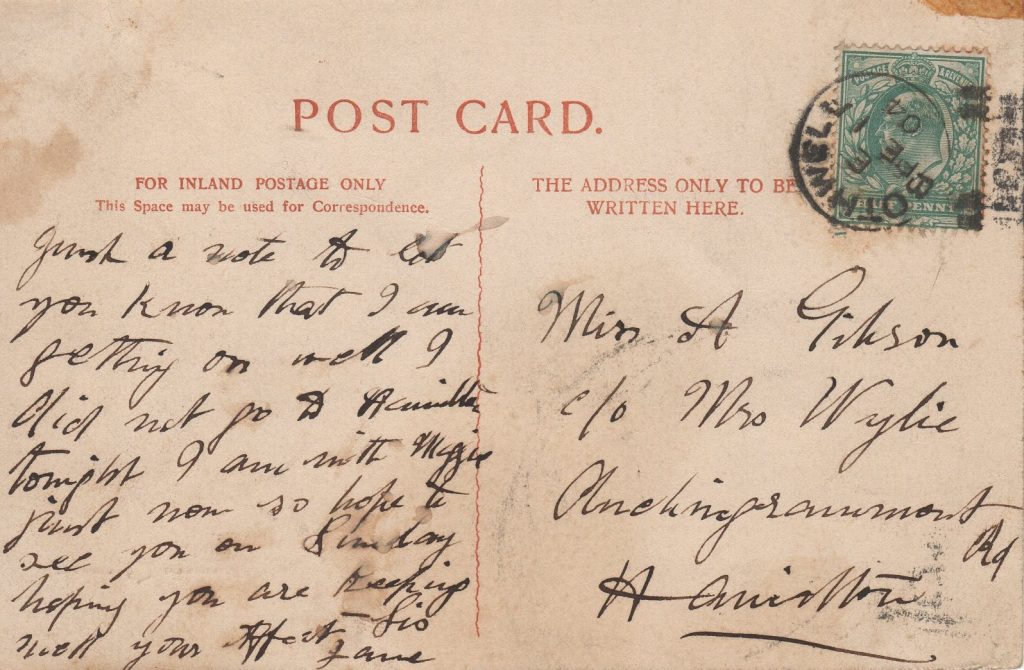 POST CARD.
FOR INLAND POSTAGE ONLY
This Space may be used for Correspondence.
Just a note to let
you know that I am
getting on well I
did not go to Hamilton
tonight I am with Maggie
just now so hope to
see you on Sunday
hoping you are keeping
well your Affect Sis
Jane
THE ADDRESS ONLY TO BE
WRITTEN HERE.
Miss A Gibson
c/o Mrs Wylie
Auchingramont
Rd
Hamilton
POSTAGE & REVENUE
BOTHWELL
04